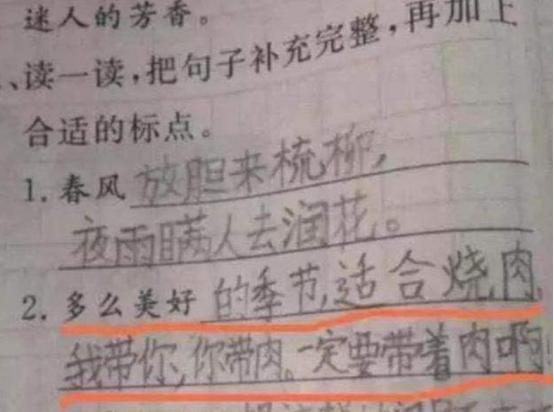 迷人的芳香。
、读一读,把句子补充完整,再加上
合适的标点。
1. 春风放胆来梳柳,
夜雨瞒人去润花。
2. 多么美好的季节,适合烧肉,
我带你,你带肉。一定要带着肉啊